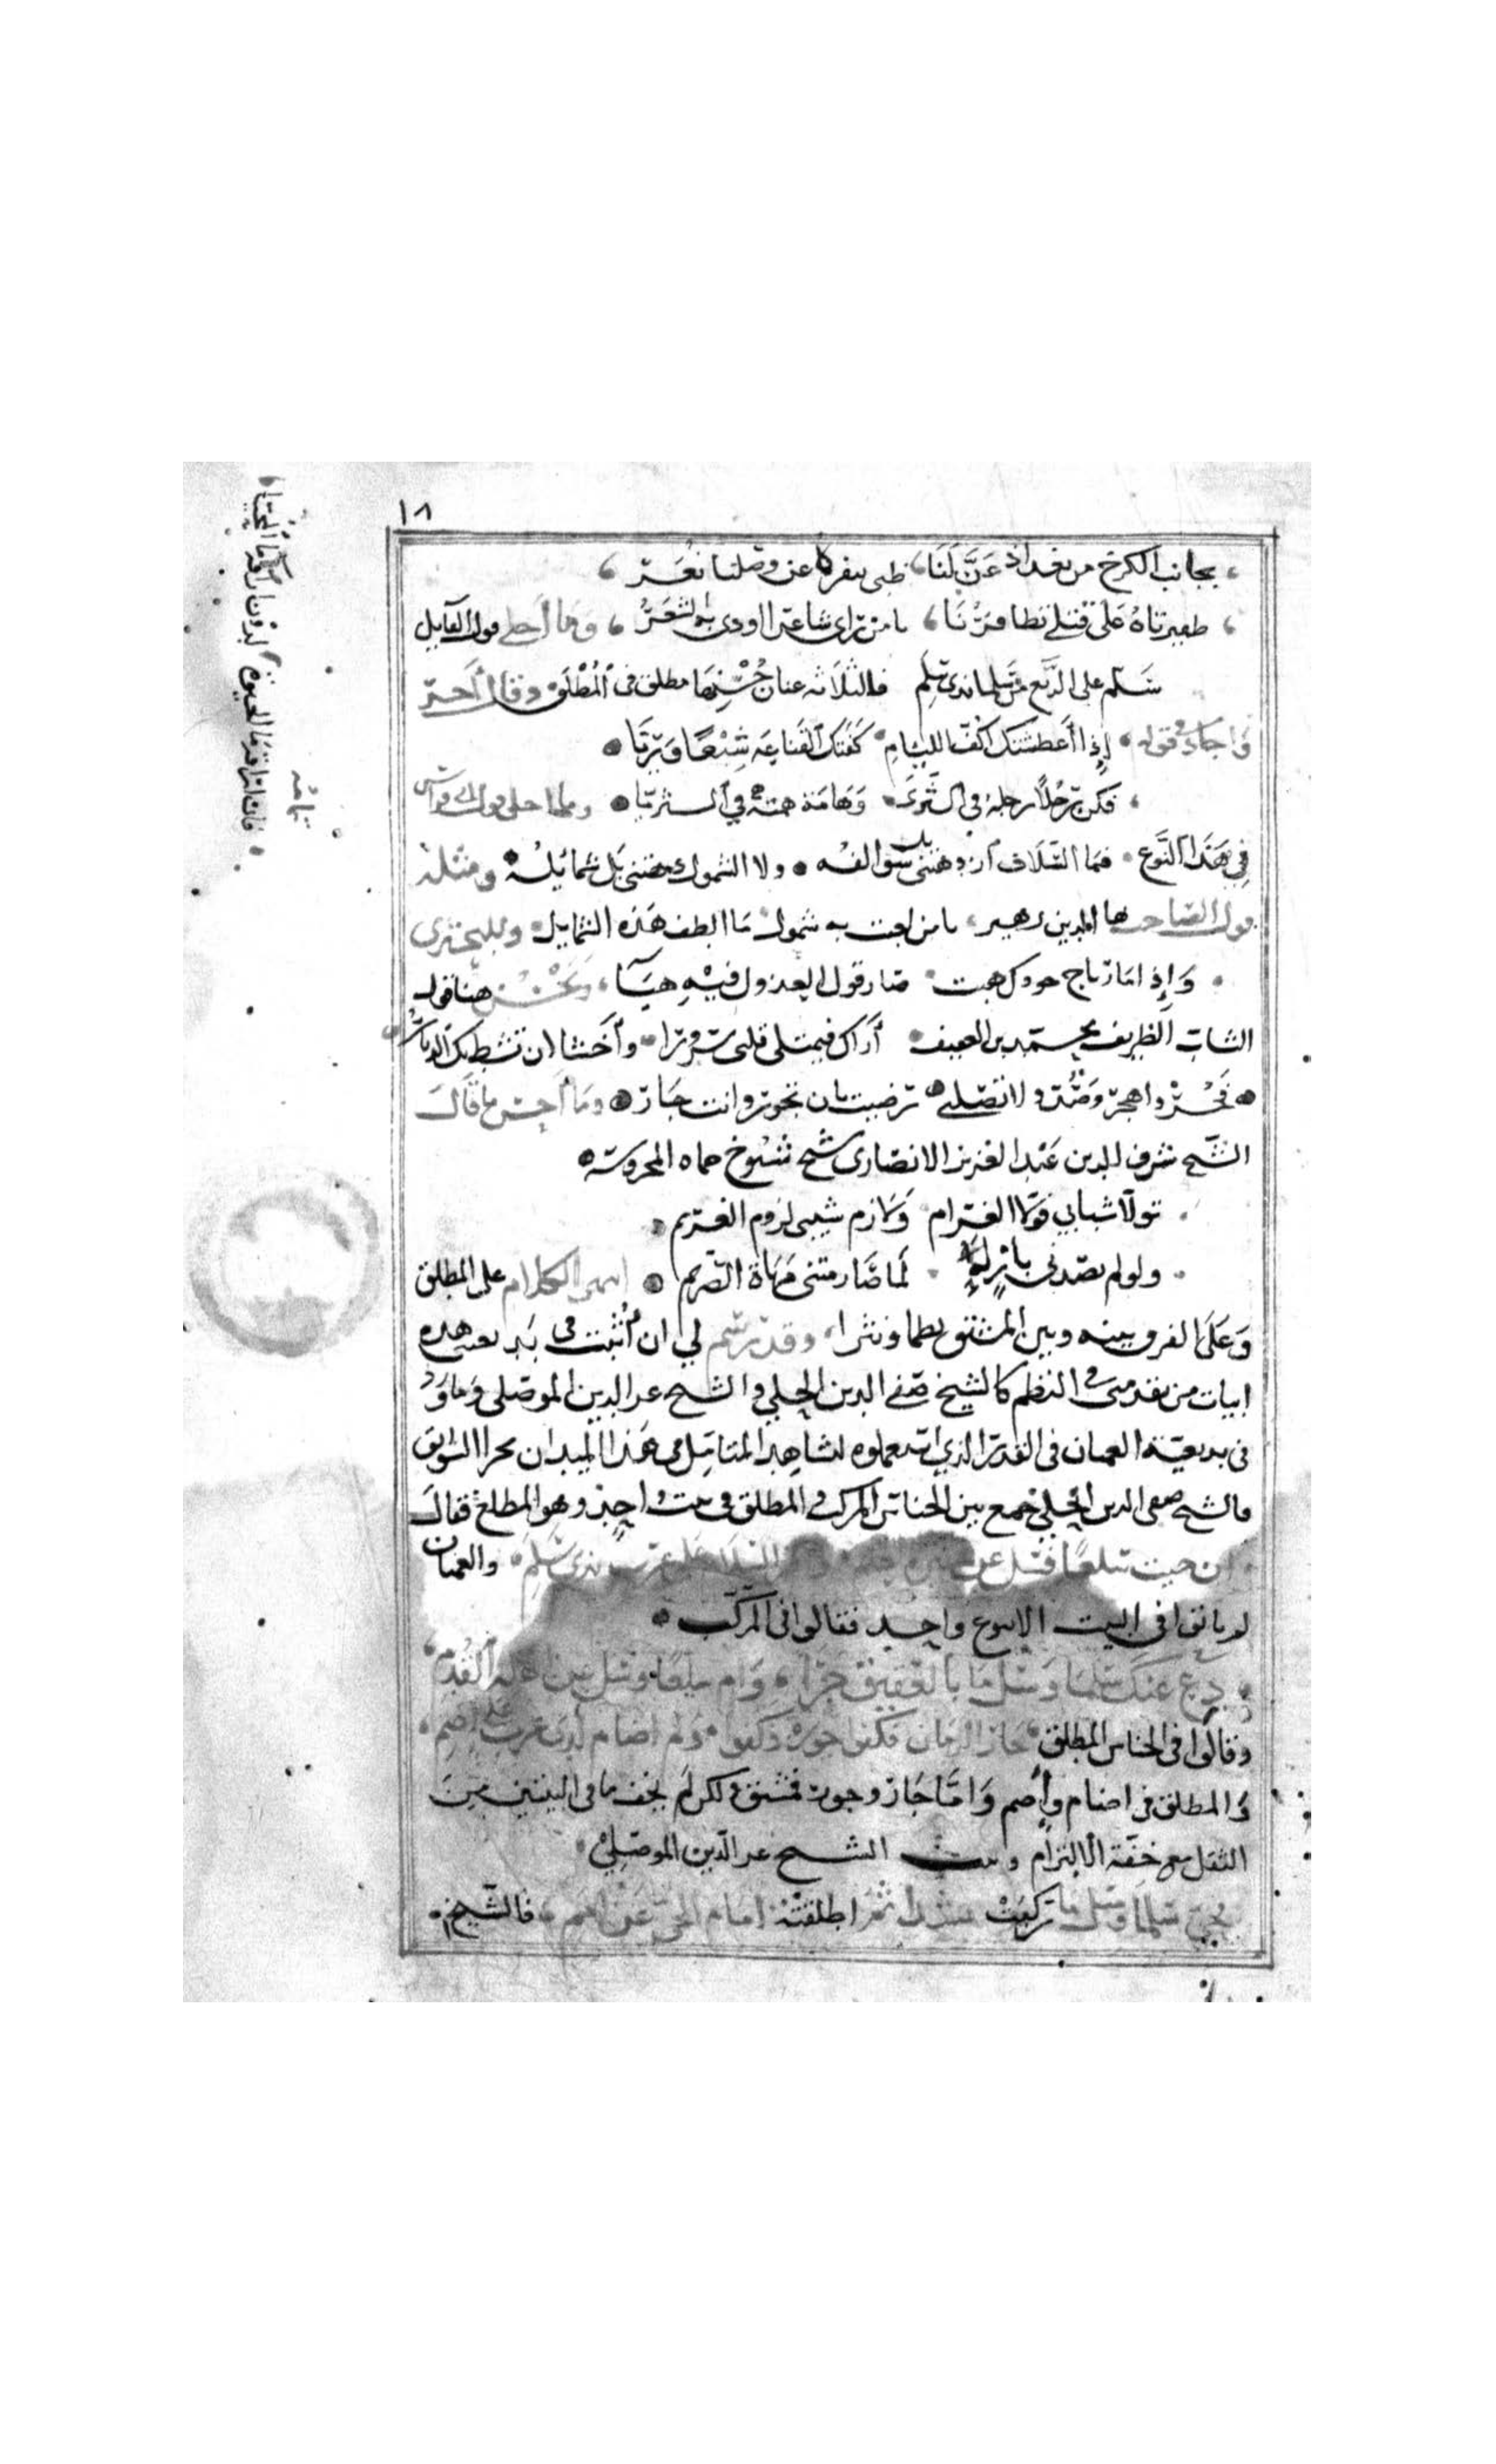 ١٨
بجانب الكرخ من بغداد عَنَّ لَنَا ظبى ينفره عن وصلنا نفر
ظفيرتاه على قتلى تظافرتا يا من رأى شاعرا اودى به الشعر وما أحلى قول القايل
سَلّم على الربع من سلما بذى سلم فالثلاثه عنان حُسْنها مطلق فى المُطْلَق وقال آخر
وَاجاد فى قوله إِذا أَعطشتك اكفّ الليام كَفَتك القناعَه شِبْعًا وريّا
فكن رجُلًا رجله فى الثَّرى وَهَامَة همته في الـثريا وما احلى قول ابى فراس
فِي هَذا النَّوع فما السّلاف ازدهتنى بل سوالفه ولا الشمول دهتنى بَل شمائِلُهْ ومثله
قول الصاحب بها الدين زهير يا من لعبت به شمول مَا الطف هَذه الشمايل وللبحترى
وَإِذ امَا رياح جودك هبت صَار قول العذول فيْهِ هَبَآ وَيَحْسُن هنا قول
الشاب الظريف محـمد بن العفيف أَرَاك فيمتلى قلبى سرورًا وأَخشا ان تشط بك الديار
فَجُرْ واهجر وَصُد ولا تصلنى رضيت بان تجور وانت جَار ومَا أحسن ما قَالَ
الشّيخ شرف الدين عَبْد العَزيز الانصارى شيخ شيوخ حماه المحروسَه
تولّا شبابي فوَلّا الغـرام وَلازم شيبى لزوم الغـريم
ولو لم يصدنى بازله لَما صَار منى مَهاة الصّريم انتهى الكلام على المطلق
وَعَلَى الفرق بينه وبين المشتق نظما ونثرا وقد رسم لي ان أُثْبت فى بديعتى هذه
ابيات من تقدمنى فى النظم كالشيخ صَفى الدين الحلى والشيخ عز الدين الموصلى وَما وَرد
فى بديعيّة العميان فى القدر الذى استعملوه ليشاهد المتامِل فى هذا الميدان مجرا السوابق
فالشيخ صفى الدين الحلى جَمع بين الجناس المركب والمطلق فى بيت واحِد وهو المطلع فقالَ
ان جيت سلعًا فسل عن جيرة العلم واقر السلام على عرب بذى سَلَم والعميان
لم ياتوا فى البيت الا بنوع واحِـد فقالوا فى المركّب
دع عنك سلما وَسل ما بالعقيق جرَا وَام سلعًا وسل عن اهله القُدم
وقالوا فى الجناس المطلق جَار الزمان فكفوا جوره وكفوا وَلم اضام لدى عرب على اضم
وَالمطلق فى اضام وإِضم وَامّا جَار وجوره فمشتق ولكن لَم يخف ما فى البيتين مِن
الثقل مع خفّة الالتزام وبيت الشـيخ عز الدّين الموصلي
فحي سلما وسَل ما ركبَتْ بشذا أَطلقتْهُ امَام الحَيّ عَنْ امَم فالشَيخ